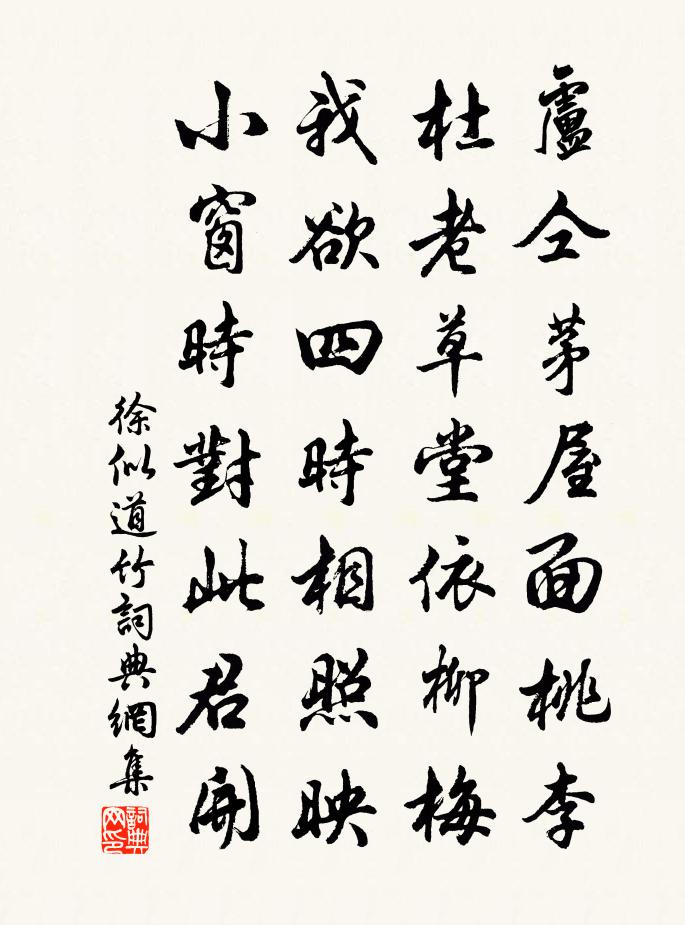 盧仝茅屋面桃李
杜老草堂依柳梅
我欲四時相照映
小窗時對此君開
徐似道竹詞典網集
詞典网印